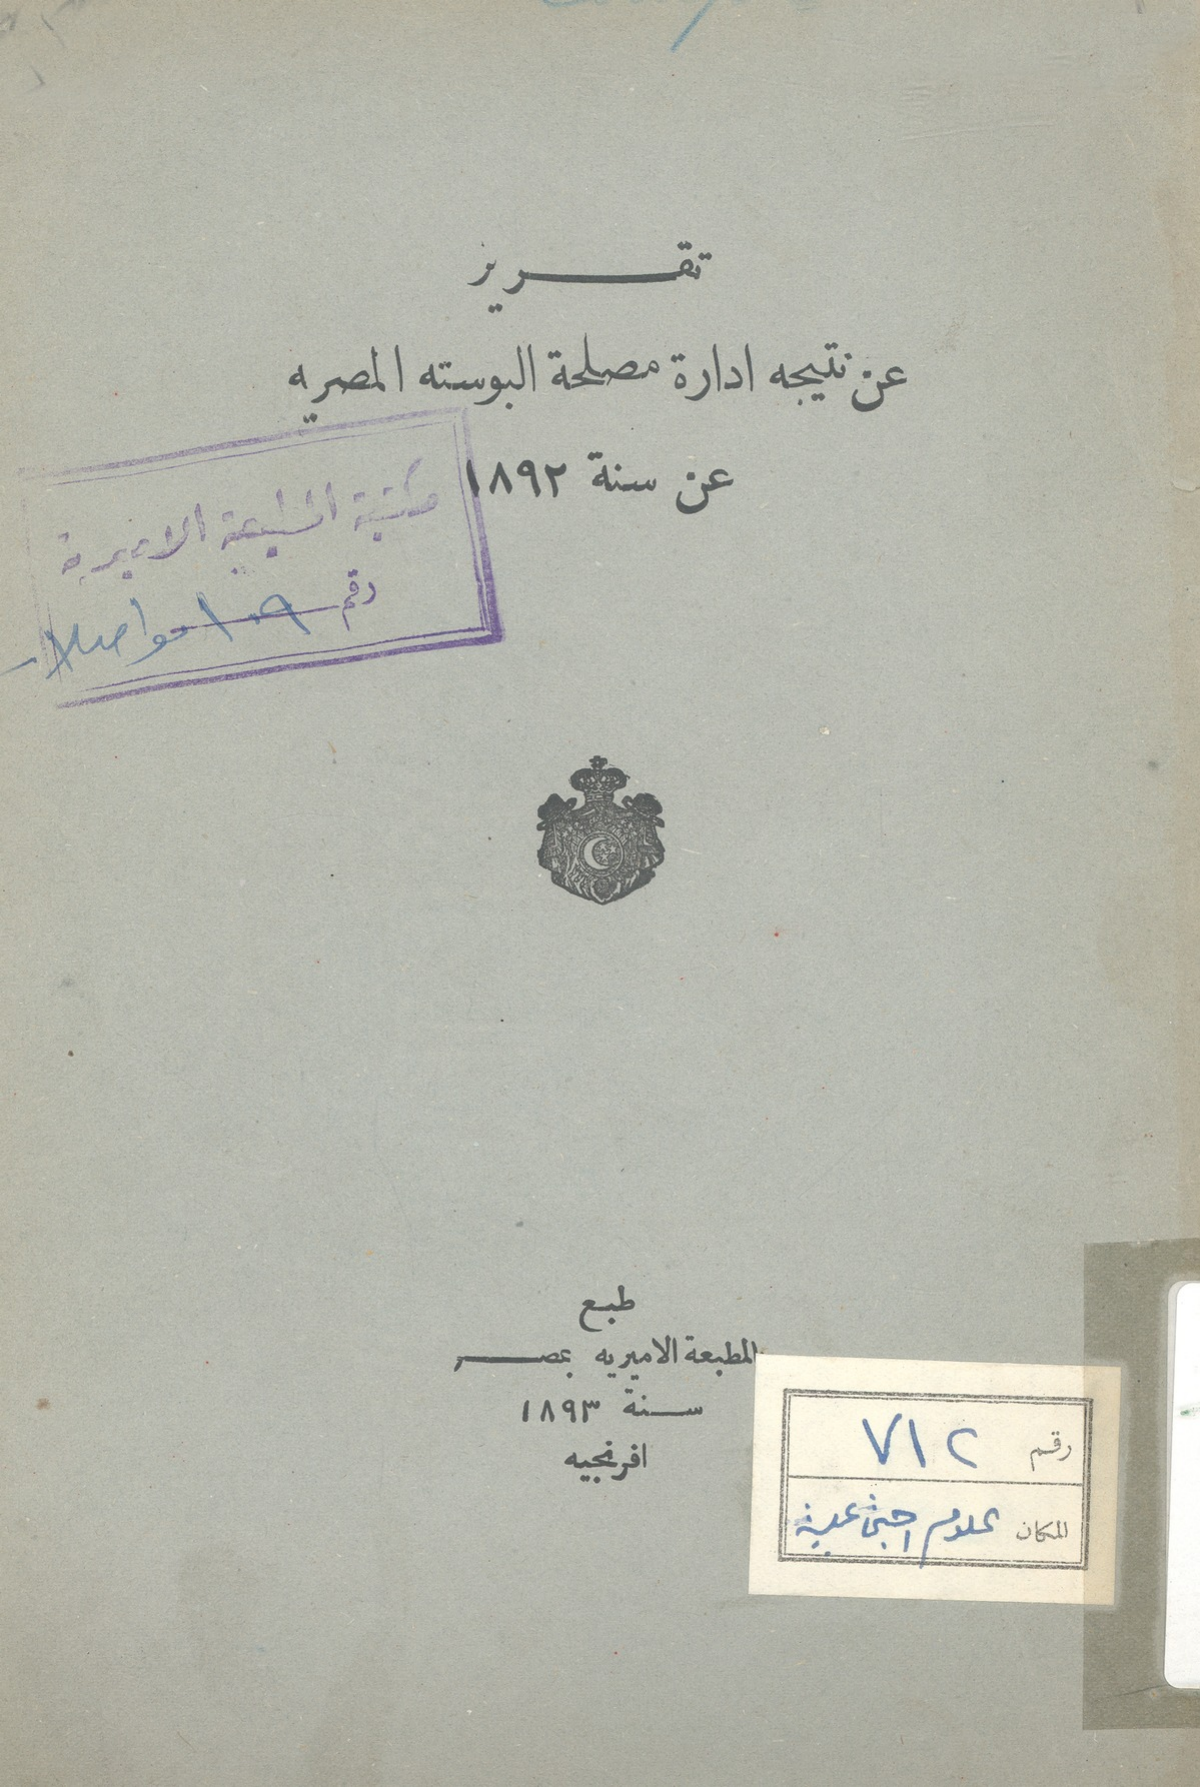 تقرير
عن نتيجه ادارة مصلحة البوسته المصريه
عن سنة ١٨٩٢
مكتبة المطبعة الاميرية
رقم ١٠٩ مواصلات
طبع
المطبعة الاميريه بمصر
سنة ١٨٩٣
افرنجيه
رقم ٧١٢
المكان علوم اجتماعية